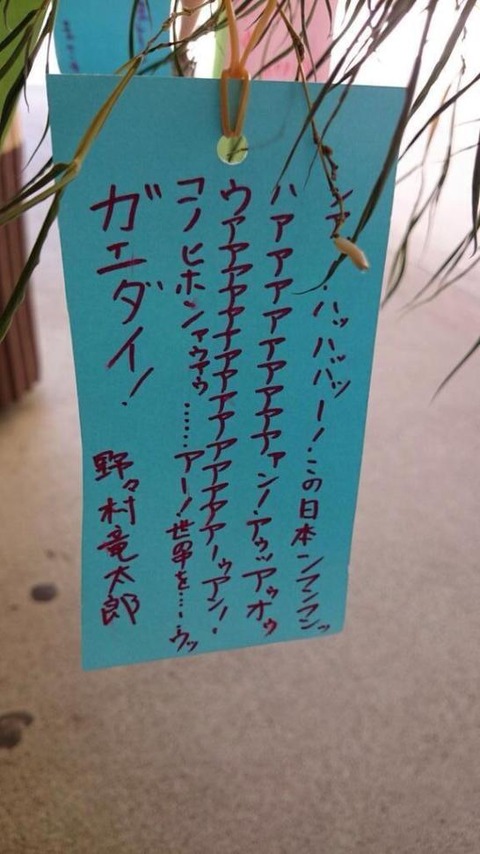 ハッハッハッー!この日本ンフンフンッ
ハアアアアアアアアアァン!アゥッアゥオゥ
ウアアアアアアアアアアアアアアーゥアン!
コノヒホンァゥァゥ……アー!世界を……ウッ
ガエダイ!
野々村竜太郎